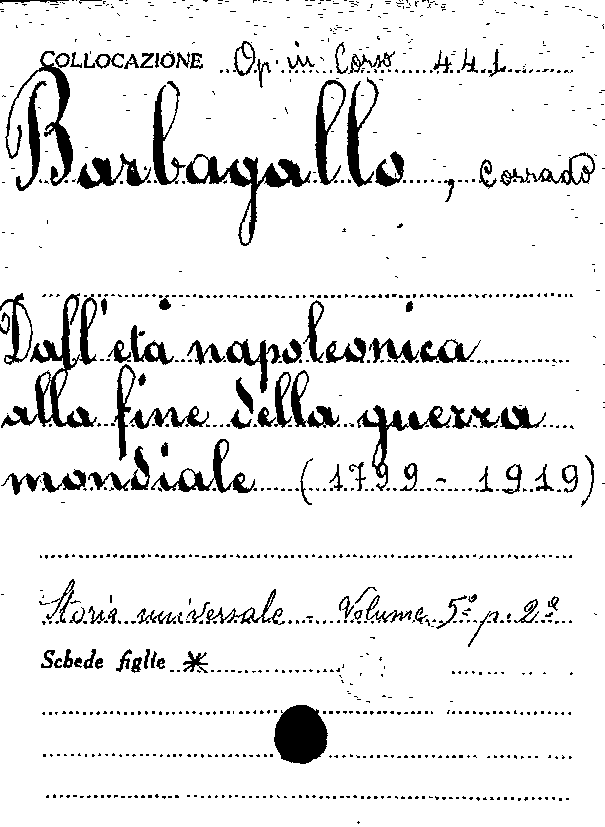 COLLOCAZIONE Op. in Corso 441
Barbagallo, Corrado
Dall'età napoleonica
alla fine della guerra
mondiale (1799-1919)
Storia universale - Volume 5º p. 2ª
Schede figlie *